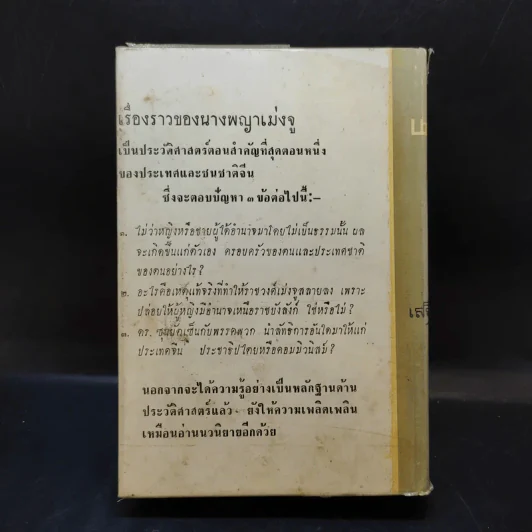 เรื่องราวของนางพญาเม่งจู
เป็นประวัติศาสตร์ตอนสำคัญที่สุดตอนหนึ่ง
ของประเทศและชนชาติจีน
ซึ่งจะตอบปัญหา ๓ ข้อต่อไปนี้:–
๑. ไม่ว่าหญิงหรือชายผู้ได้อำนาจมาโดยไม่เป็นธรรมนั้น ผล
จะเกิดขึ้นแก่ตัวเอง ครอบครัวของตนและประเทศชาติ
ของตนอย่างไร?
๒. อะไรคือเหตุแท้จริงที่ทำให้ราชวงศ์เม่งจูสลายลง เพราะ
ปล่อยให้ผู้หญิงมีอำนาจเหนือราชบัลลังก์ ใช่หรือไม่?
๓. ดร. ซุนยัดเซ็นกับพรรคพวก นำลัทธิการอันใดมาให้แก่
ประเทศจีน ประชาธิปไตยหรือคอมมิวนิสม์?
นอกจากจะได้ความรู้อย่างเป็นหลักฐานด้าน
ประวัติศาสตร์แล้ว ยังให้ความเพลิดเพลิน
เหมือนอ่านนวนิยายอีกด้วย